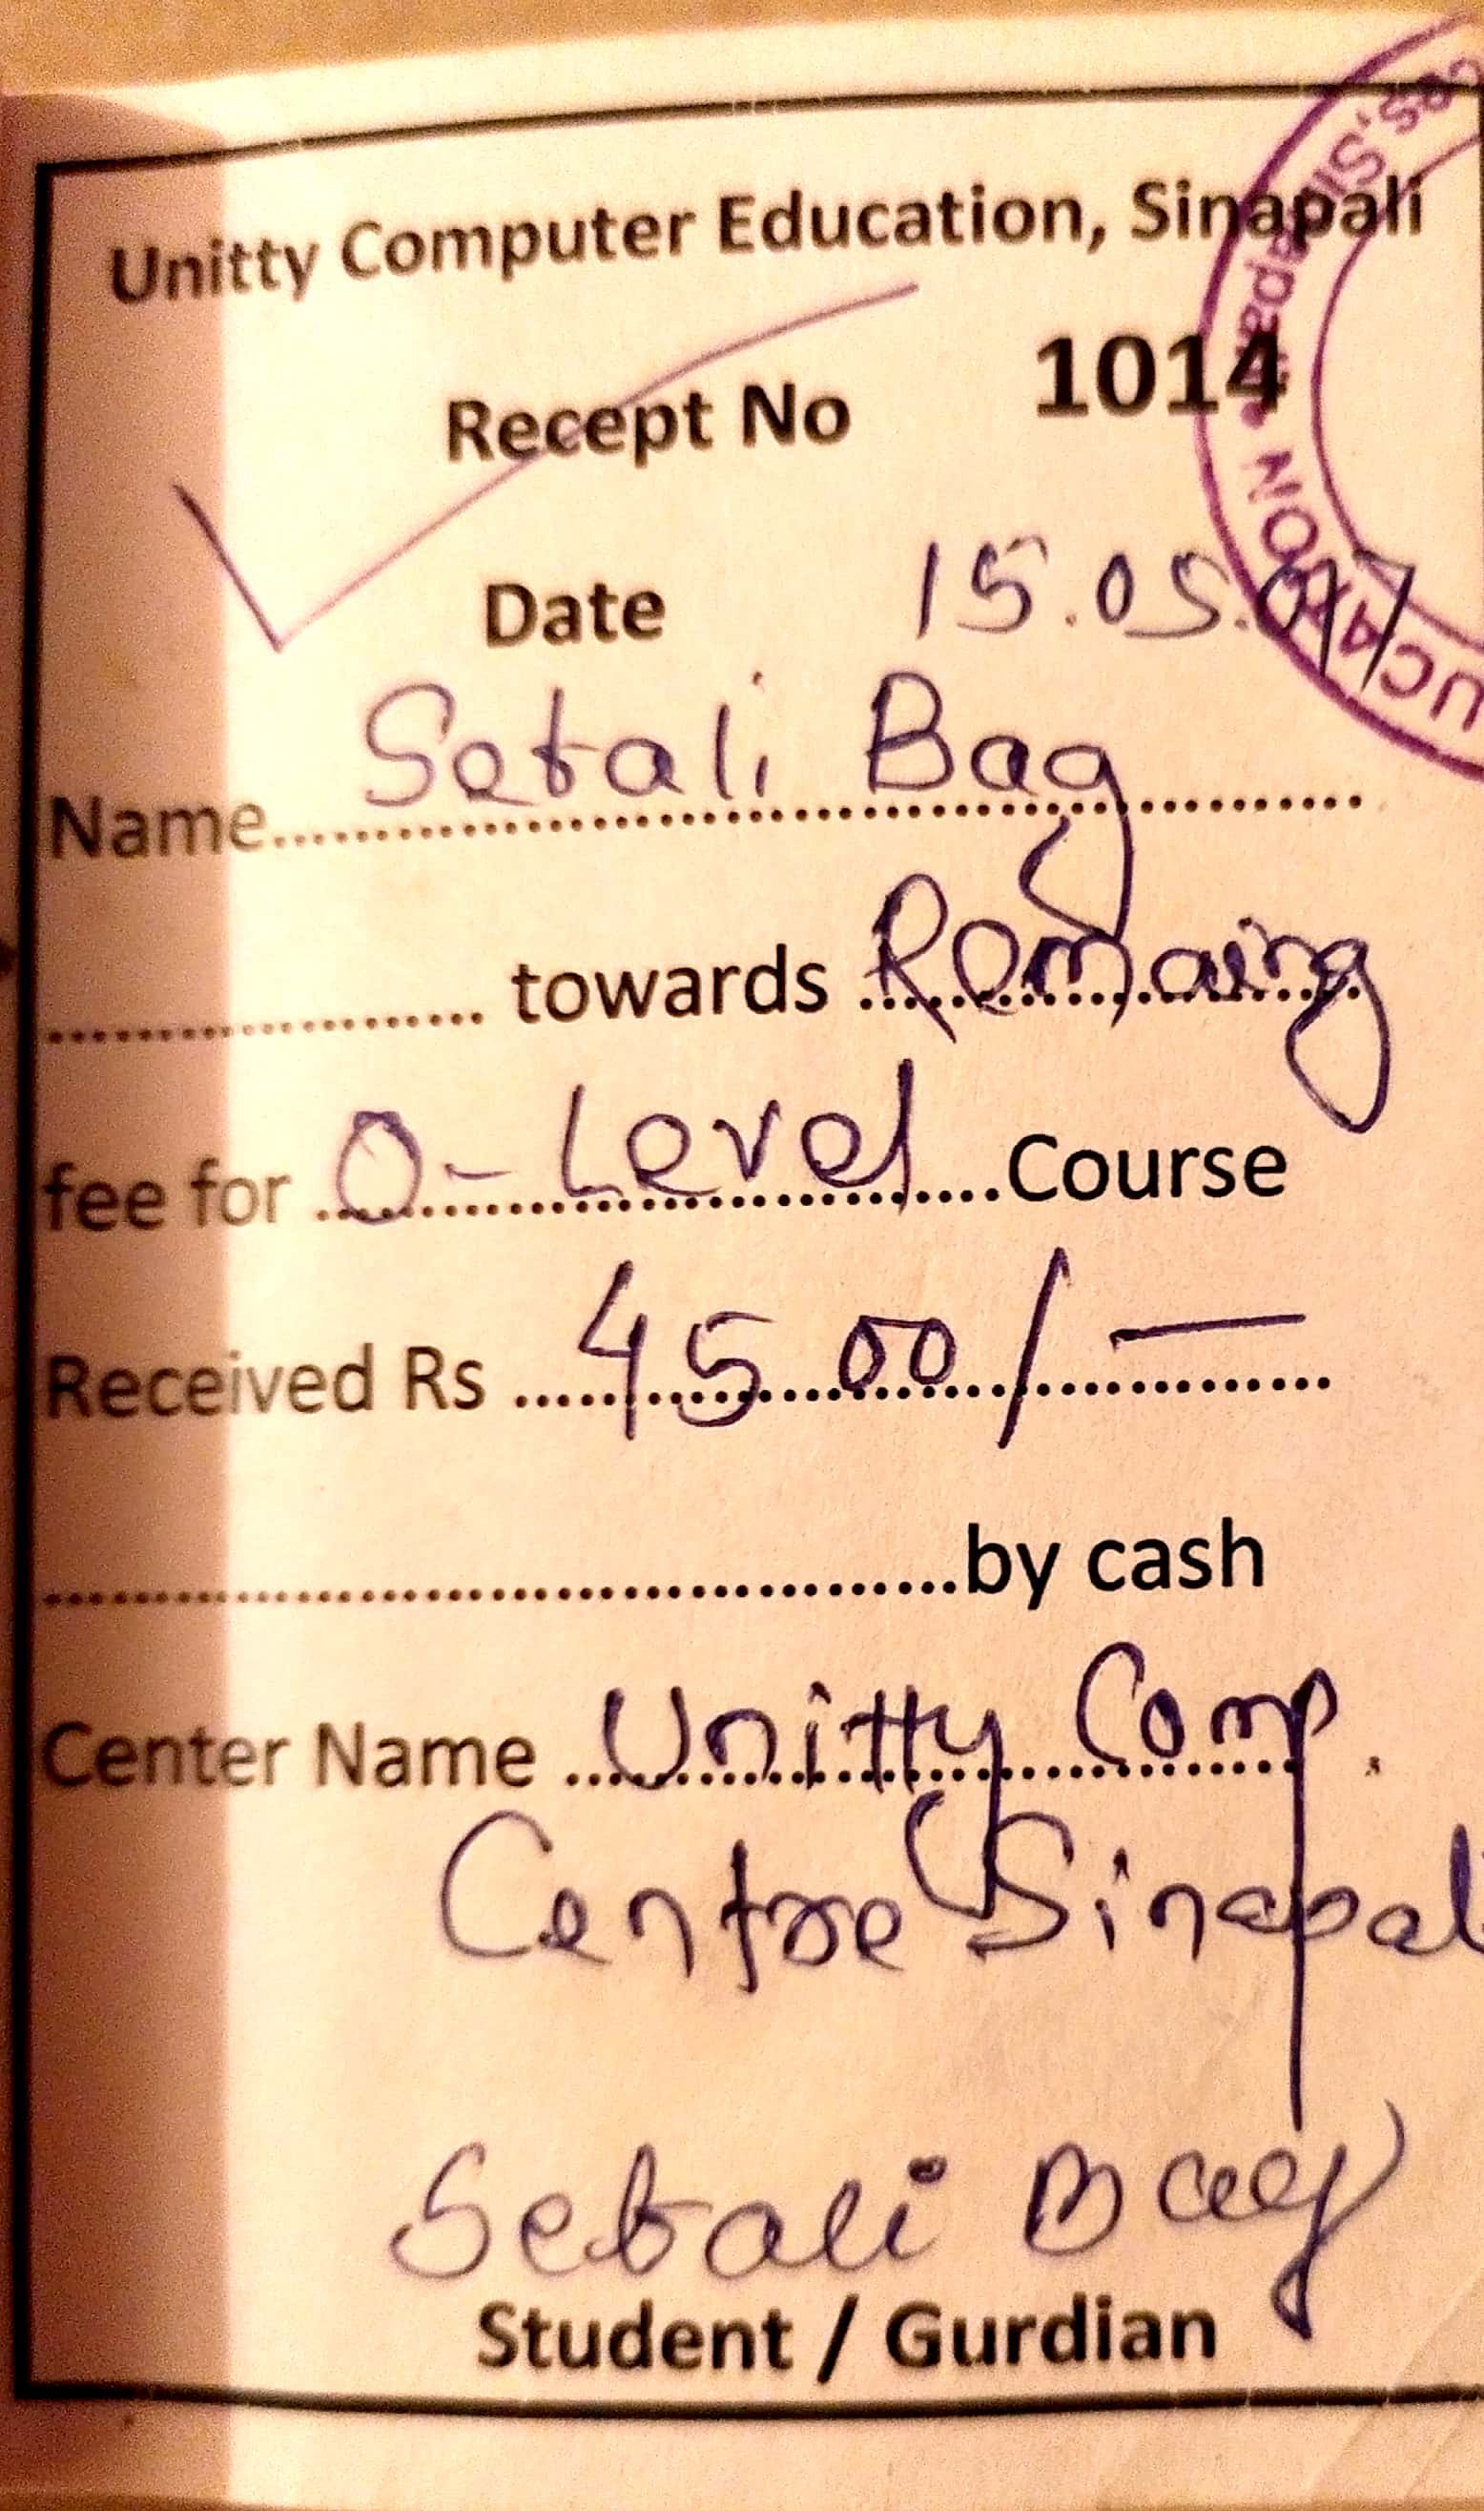 Unitty Computer Education, Sinapali
Recept No 1014
Date 15.05.
Name Setali Bag
towards Remaing
fee for O-Level Course
Received Rs 4500/-
by cash
Center Name Unitty Comp.
Centre Sinapali
Setali Bag
Student / Gurdian